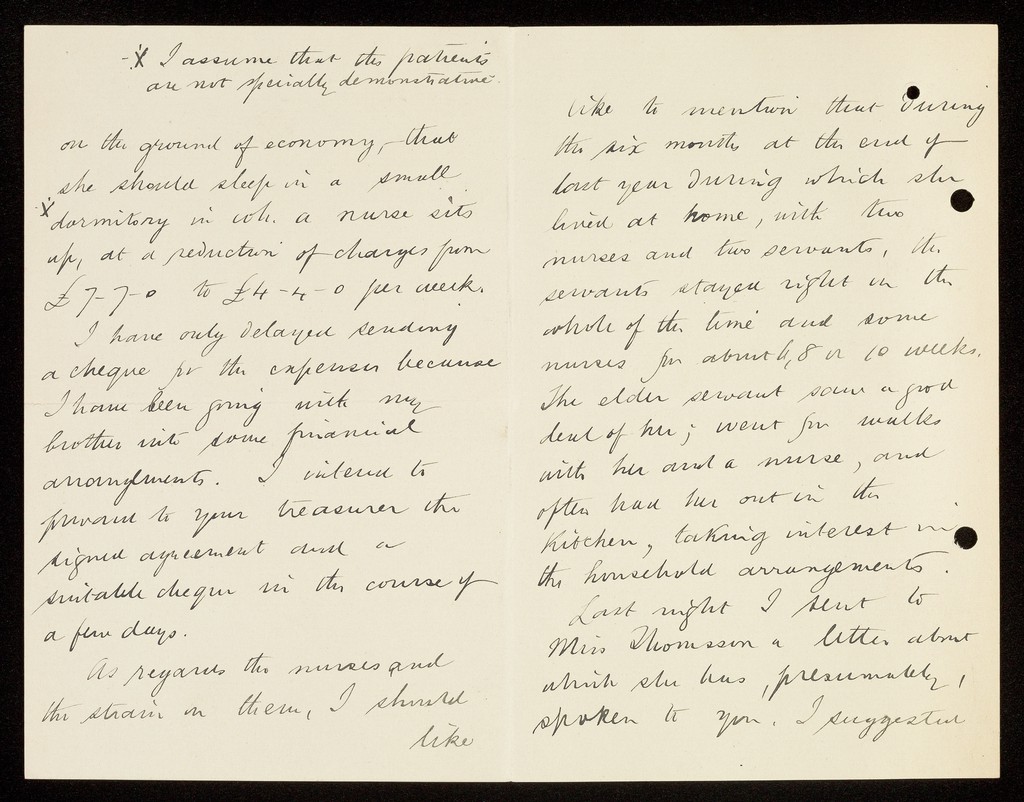 -x I assume that the patients
are not specially demonstrative.
on the ground of economy, - that
she should sleep in a small
x dormitory in wh. a nurse sits
up, at a reduction of charges from
£7-7-0 to £4-4-0 per week.
I have only delayed sending
a cheque for the expenses because
I have been going with my
brother into some financial
arrangements. I intend to
forward to your treasurer the
signed agreement and a
suitable cheque in the course of
a few days.
As regards the nurses and
the strain on them, I should
like
like to mention that during
the six months at the end of
last year during which she
lived at home, with two
nurses and two servants, the
servants stayed right in the
whole of the time and some
nurses for about 6, 8 or 10 weeks.
The elder servant saw a good
deal of her; went for walks
with her and a nurse, and
often had her out in the
kitchen, taking interest in
the household arrangements.
Last night I sent to
Miss Thomsson a letter about
which she has, presumably,
spoken to you. I suggested